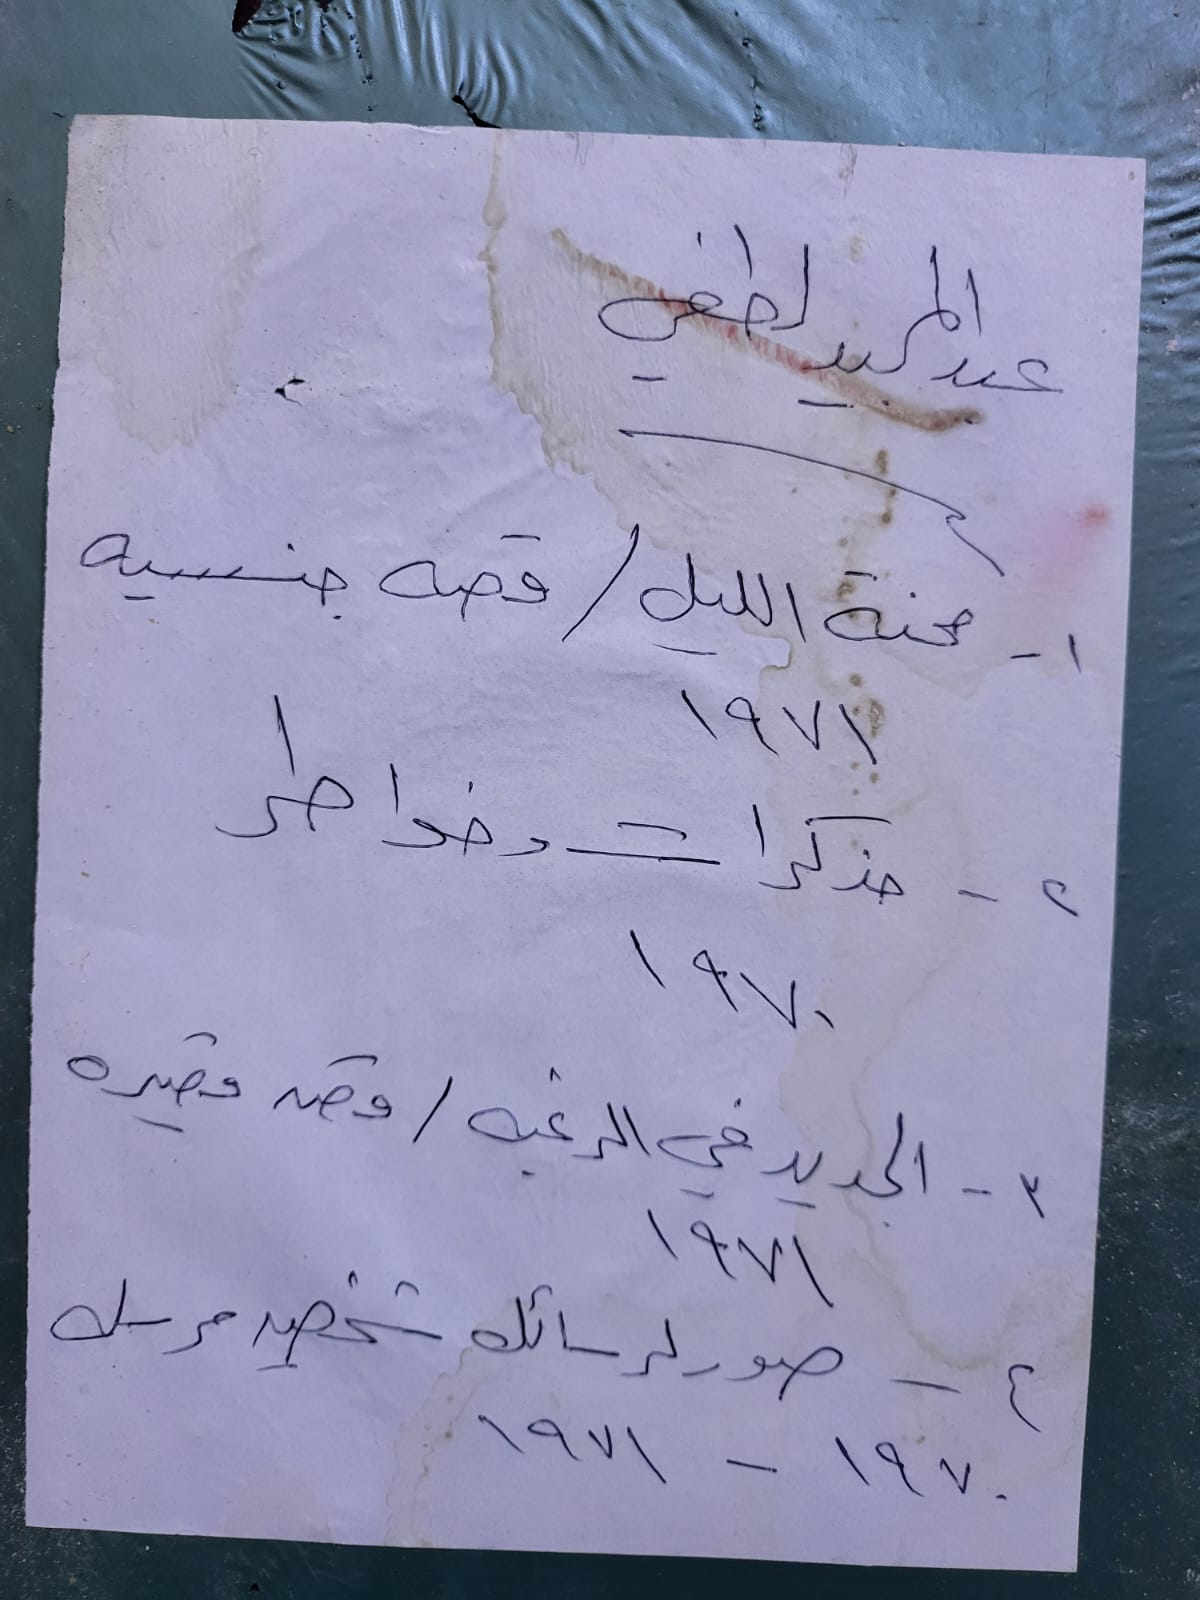 عبد المجيد لطفي
١ - محنة الليل / قصة جنسيه
١٩٧١
٢ - مذكرات وخواطر
١٩٧٠
٣ - الجديد في الرغبه / قصه قصيره
١٩٧١
٤ - صور لرسائل شخصيه مرسله
١٩٧٠ - ١٩٧١